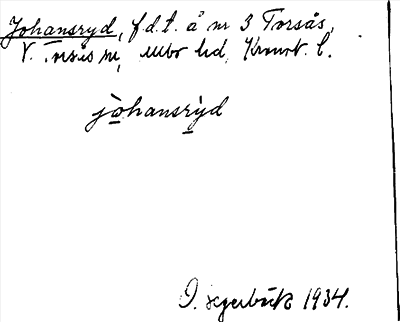 Johansryd, f.d.t. å nr 3 Torsås,
V. Torsås sn, Allbo hd, Kronob. l.
jòhansrỳd
D. Segerbäck 1934.